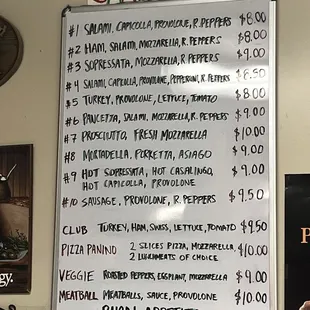 #1 SALAMI, CAPICOLLA, PROVOLONE, R. PEPPERS $8.00
#2 HAM, SALAMI, MOZZARELLA, R. PEPPERS $8.00
#3 SOPRESSATA, MOZZARELLA, R. PEPPERS $9.00
#4 SALAMI, CAPICOLLA, PROVOLONE, PEPPERONI, R. PEPPERS $8.50
#5 TURKEY, PROVOLONE, LETTUCE, TOMATO $8.00
#6 PANCETTA, SALAMI, MOZZARELLA, R. PEPPERS $9.00
#7 PROSCIUTTO, FRESH MOZZARELLA $10.00
#8 MORTADELLA, PORKETTA, ASIAGO $9.00
#9 HOT SOPRESSATA, HOT CASALINGO, $9.00
HOT CAPICOLLA, PROVOLONE
#10 SAUSAGE, PROVOLONE, R. PEPPERS $9.50
CLUB TURKEY, HAM, SWISS, LETTUCE, TOMATO $9.50
PIZZA PANINO 2 SLICES PIZZA, MOZZARELLA, $10.00
2 LUNCHMEATS OF CHOICE
VEGGIE ROASTED PEPPERS, EGGPLANT, MOZZARELLA $9.00
MEATBALL MEATBALLS, SAUCE, PROVOLONE $10.00